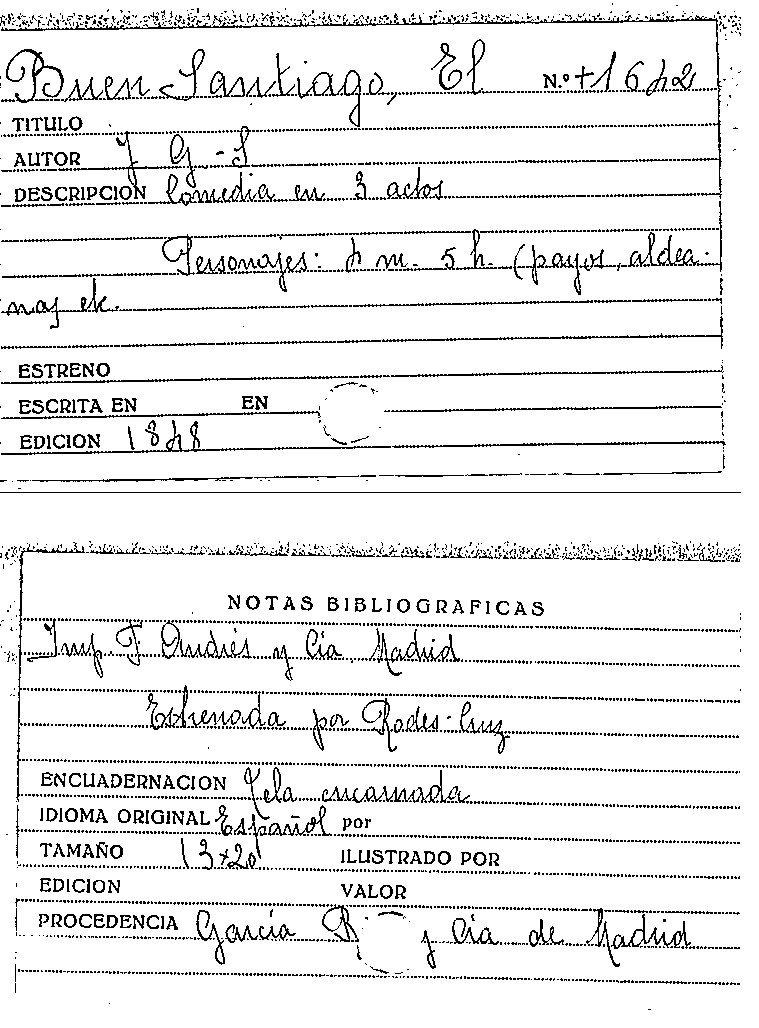 Buen Santiago, El N.º +1642
TITULO
AUTOR J G-S
DESCRIPCION Comedia en 3 actos
Personajes: 4 m. 5 h. (payos, aldea-
nas etc.
ESTRENO
ESCRITA EN EN
EDICION 1848
NOTAS BIBLIOGRAFICAS
Imp F. Andrés y Cia Madrid
Estrenada por Rodes-Cruz
ENCUADERNACION Tela encarnada
IDIOMA ORIGINAL Español por
TAMAÑO 13x20 ILUSTRADO POR
EDICION VALOR
PROCEDENCIA García y Cia de Madrid